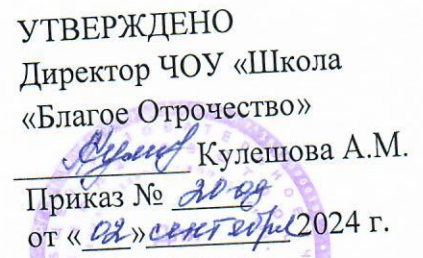 УТВЕРЖДЕНО
Директор ЧОУ «Школа
«Благое Отрочество»
Кулешова А.М.
Приказ № 20-од
от «02» сентября 2024 г.